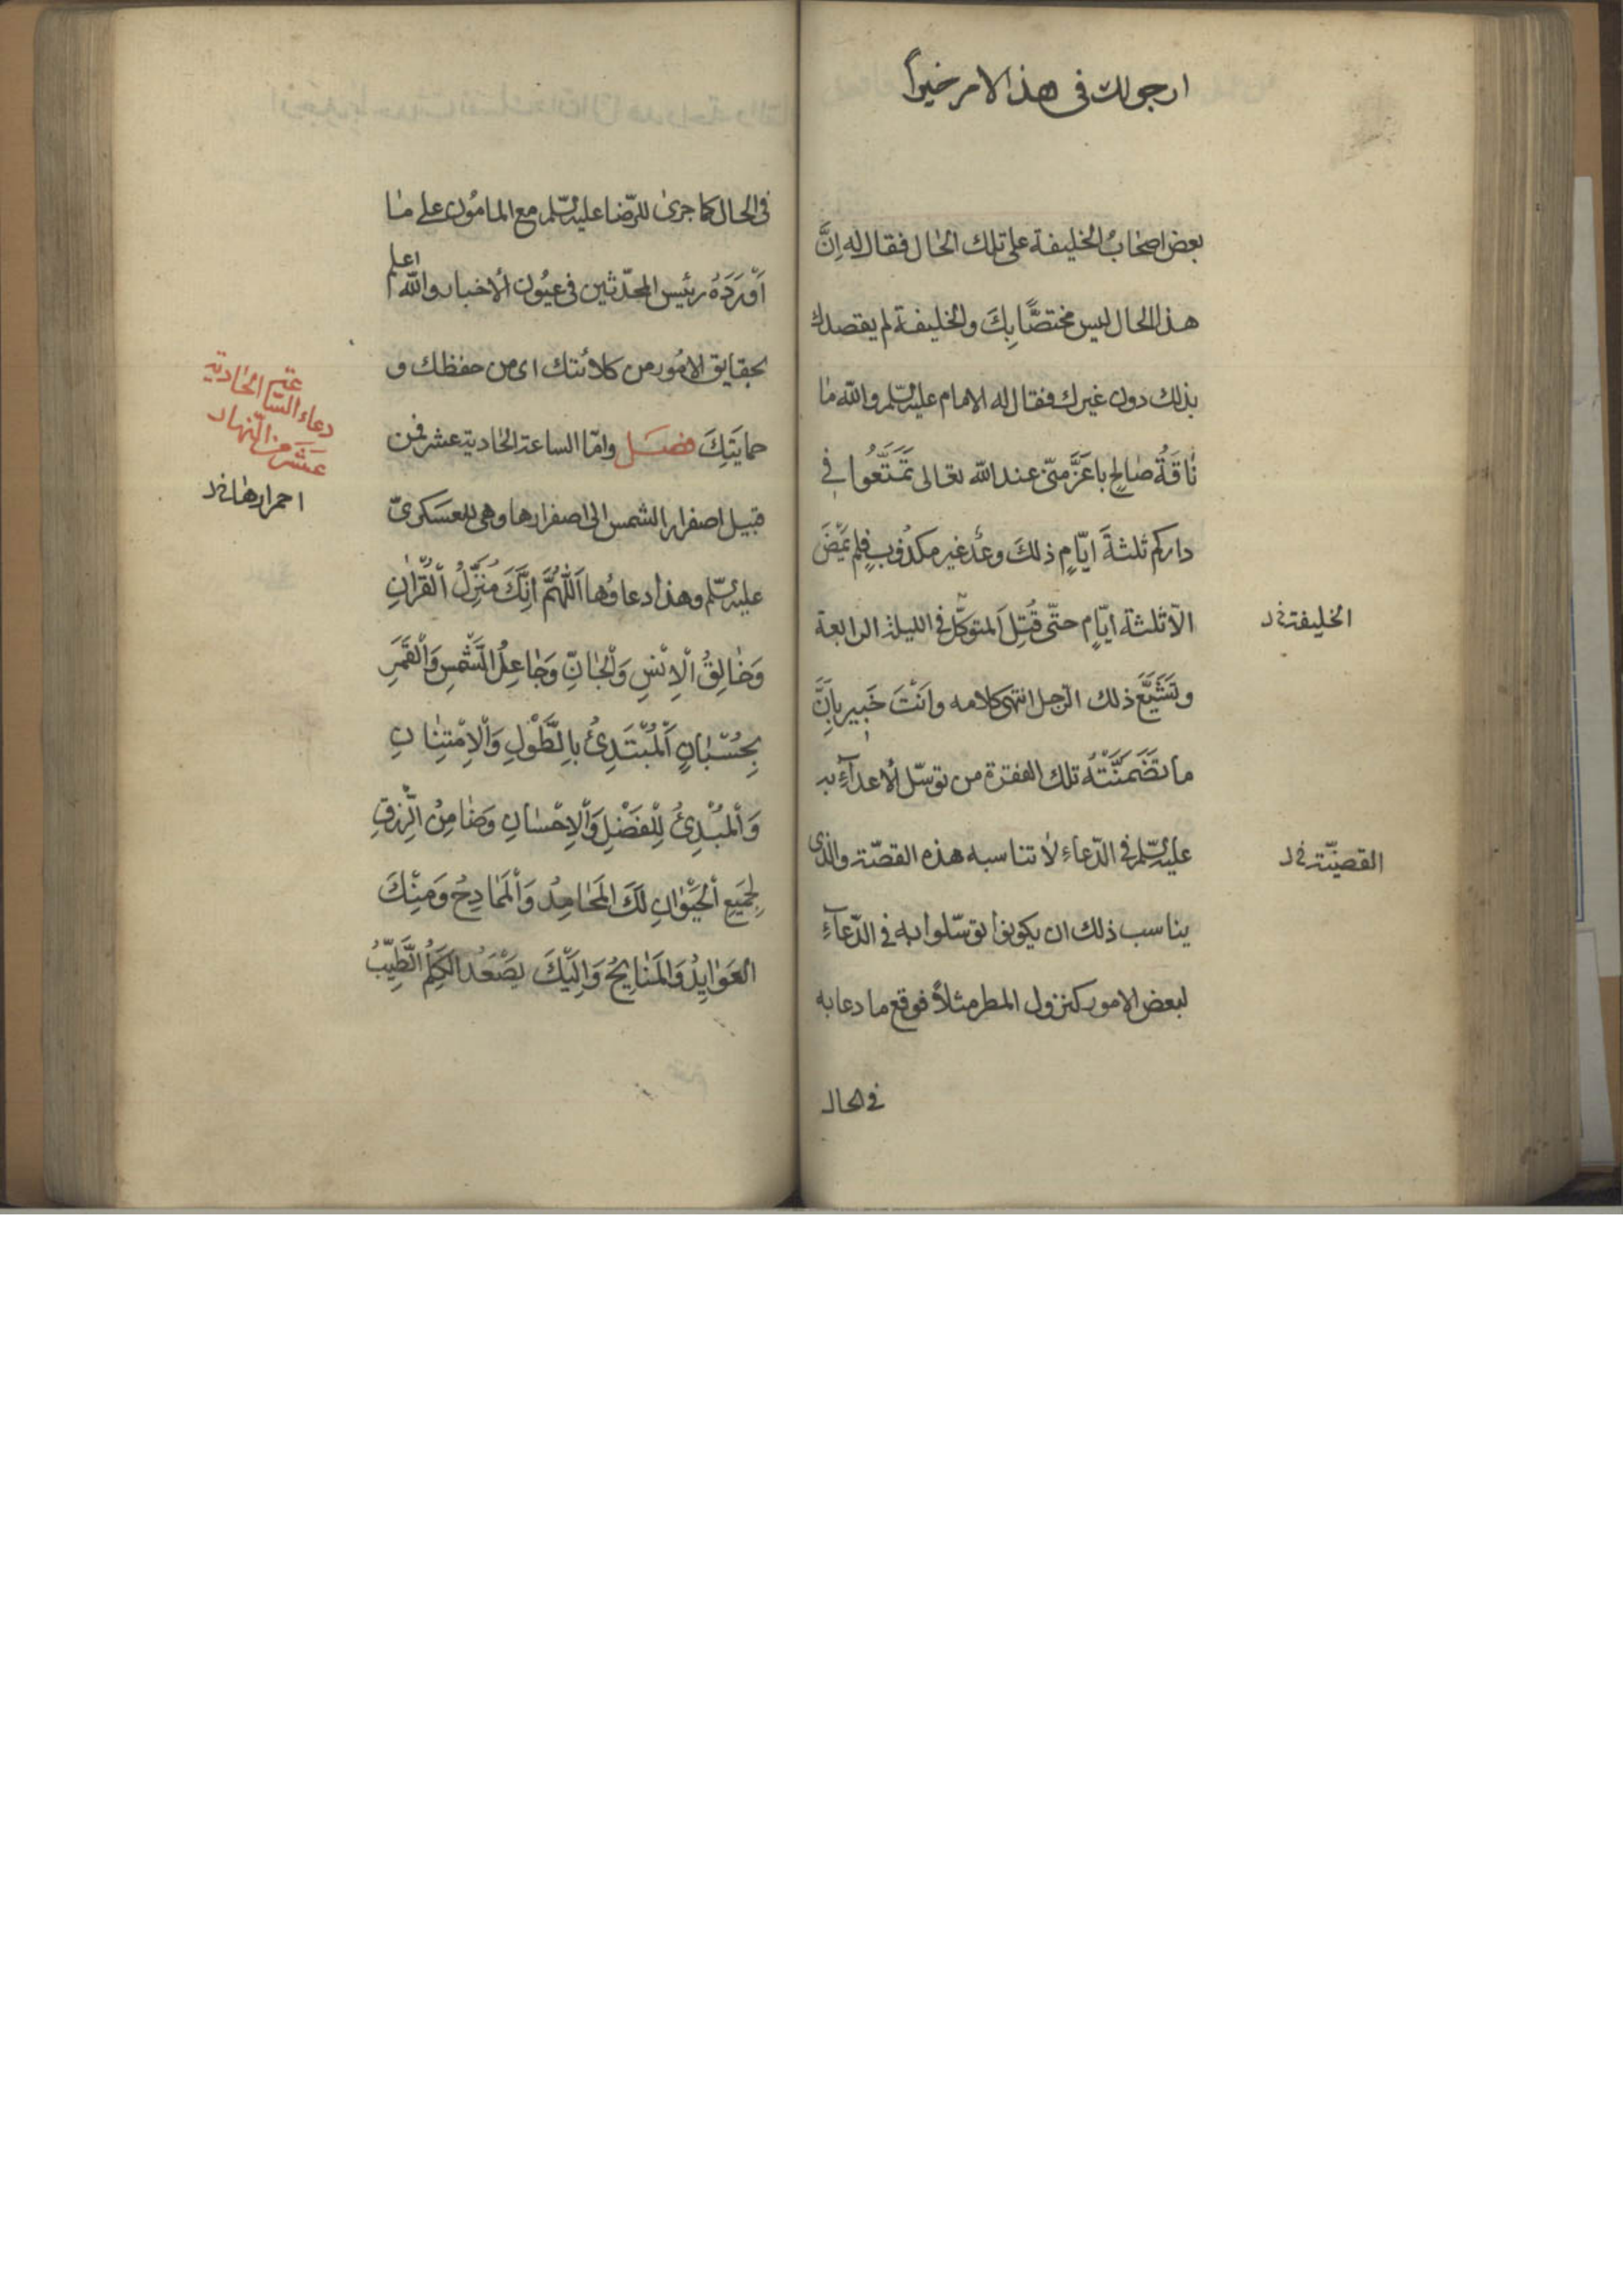 ارجو لك فى هذا الامر خيراً
بعض اصحابُ الخليفة على تلك الحال فقال له اِنَّ
هذا الحال ليس مختصًّا بِكَ والخليفة لم يقصدك
بذلك دون غيرك فقال له الامام عليه السّلم والله ما
نٰاقَةُ صٰالحٍ باَعَزَّ منّى عند الله تعالى تَمَتَّعُوا فى
داركم ثلثةَ ايّامٍ ذلكَ وعدٌ غير مكذوبٍ فلم يَمْضَ
الاّ ثلثة ايّامٍ حتّى قُتِلَ المتوكّل فى الليلة الرابعة
الخليفة خ د
وتَشَيَّعَ ذلك الرّجل انتهى كلامه وانَتْ خَبير باَنَّ
ما تَضَمَّنَتْهُ تلك الفقرة من توسّل الأعدآءِ به
عليه السّلم فى الدّعاء لا تناسبه هذه القصّة والذى
القضيّة خ د
يناسب ذلك ان يكونوا توسّلوا به فى الدّعآءِ
لبعض الامور كنزول المطر مثلاً فوقع ما دعا به
فى الحال
فى الحال كما جرىٰ للرّضا عليه السّلم مع المامُون على مٰا
اَوْرَدَهُ رئيس المحدّثين فى عيُون الأخبار والله اعلم
بحقايق الامُور من كلائتك اى من حفظك و
حمايَتِكَ فصَل وامّا الساعة الحٰادية عشر فمن
دعاء السّاعة الحٰادية
عَشَر من النّهار
قبيل اصفرار الشمس الى اصفرارها وهى للعسَكرىّ
احمرارها خ د
عليه السّلم وهذا دعاؤها اَللّٰهُمَّ اِنَّكَ مُنَزِّلُ الْقُرْاٰنِ
وَخٰالِقُ الْاِنْسِ وَالْجٰانِّ وَجٰاعِلُ الشَّمْسِ وَالْقَمَرِ
بِحُسْبٰانٍ اَلْمُبْتَدِئُ بِالطَّوْلِ وَالْاِمْتِنٰانِ
وَالْمُبْدِئُ لِلْفَضْلِ وَالْاِحْسٰانِ وَضٰامِنُ الرِّزقِ
لِجَمِيَعِ الْحَيَوٰانِ لَكَ الْمَحٰامِدُ وَالْمَمٰادِحُ وَمِنْكَ
الْعَوٰايِدُ وَالْمَنٰايِحُ وَاِلَيْكَ يَصْعَدُ الكَلِمُ الطَّيِّبُ